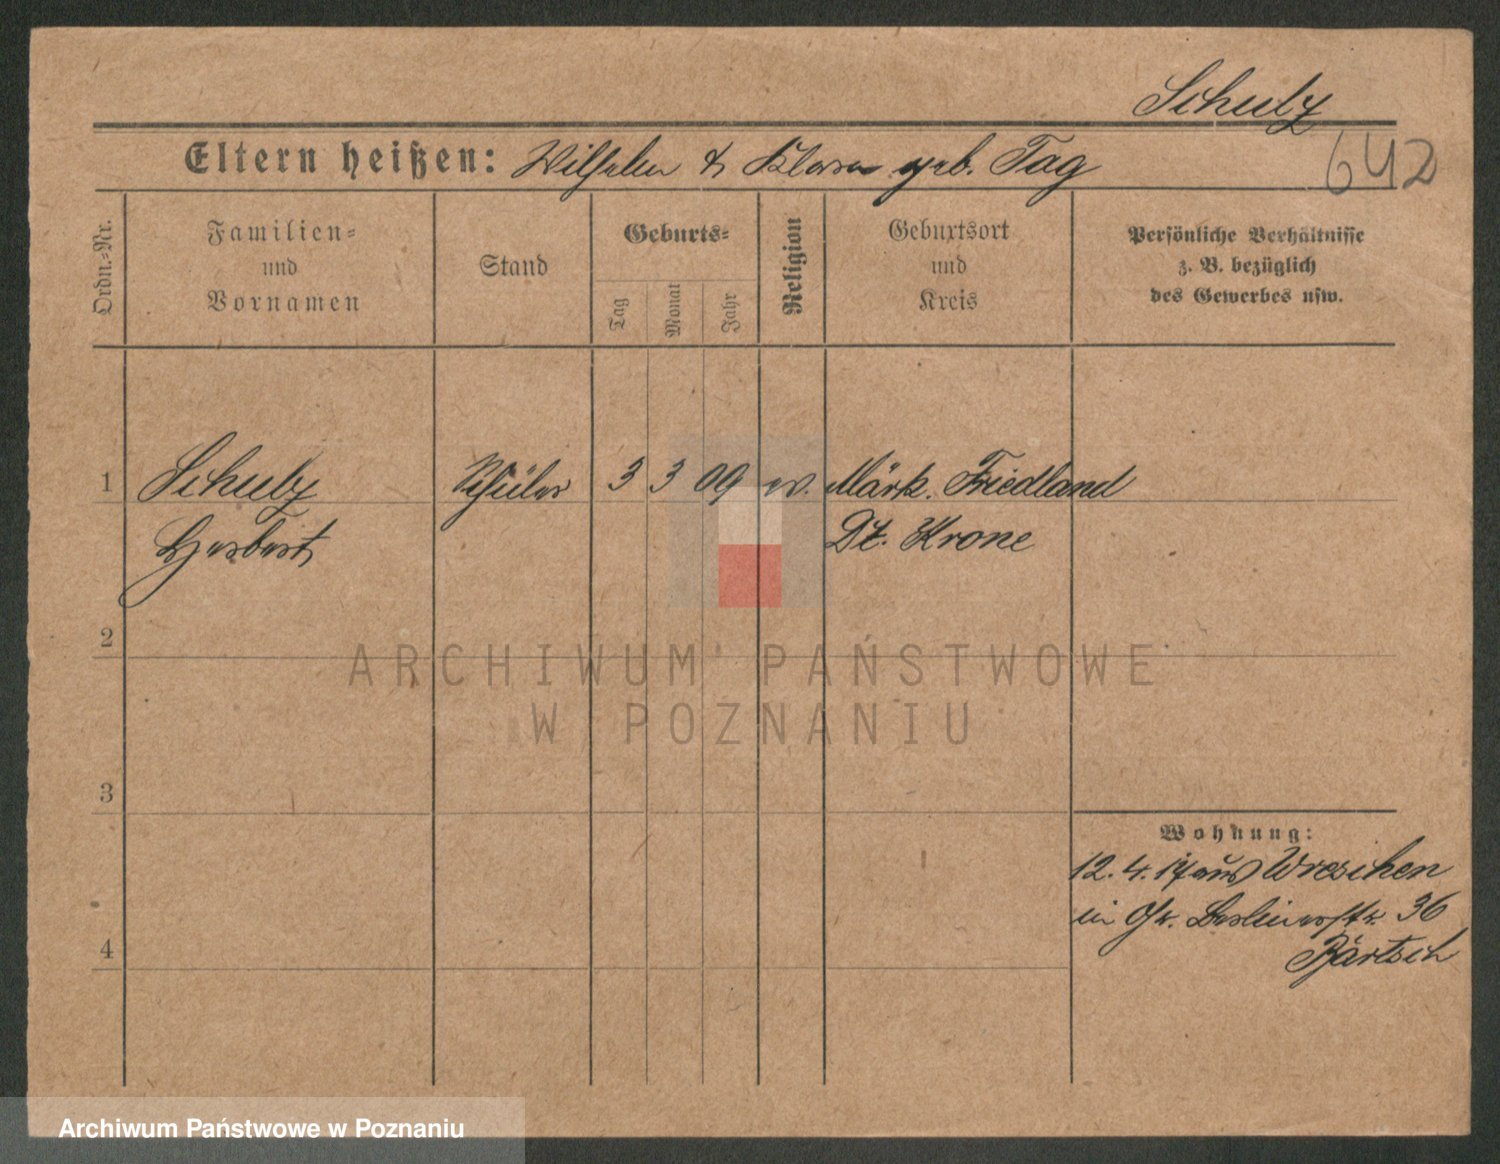 Schulz
642
Eltern heißen: Wilhelm & Klara geb. Tag
Ordn.-Nr.
Familien-
und
Vornamen
Stand
Geburts-
Tag
Monat
Jahr
Religion
Geburtsort
und
Kreis
Persönliche Verhältnisse
z. B. bezüglich
des Gewerbes usw.
1 Schulz Schüler 3 3 09 ev. Märk. Friedland
Herbert Dt. Krone
2
3
4
Wohnung:
12.4.17 aus Wreschen
in Gr. Berlinerstr. 36
Bärtsch
ARCHIWUM PAŃSTWOWE
W POZNANIU
Archiwum Państwowe w Poznaniu